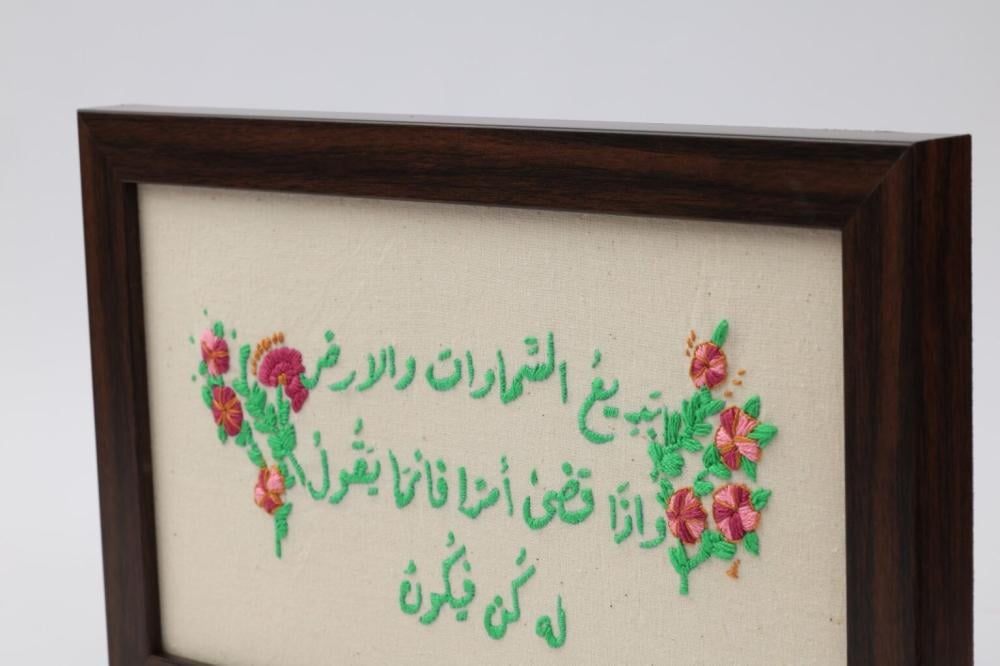 بَدِيعُ السَّمَاوَات والارض
وَاذَا قَضىٰ أمْرًا فَانمَا يَقُولُ
لهُ كُن فيَكُونُ